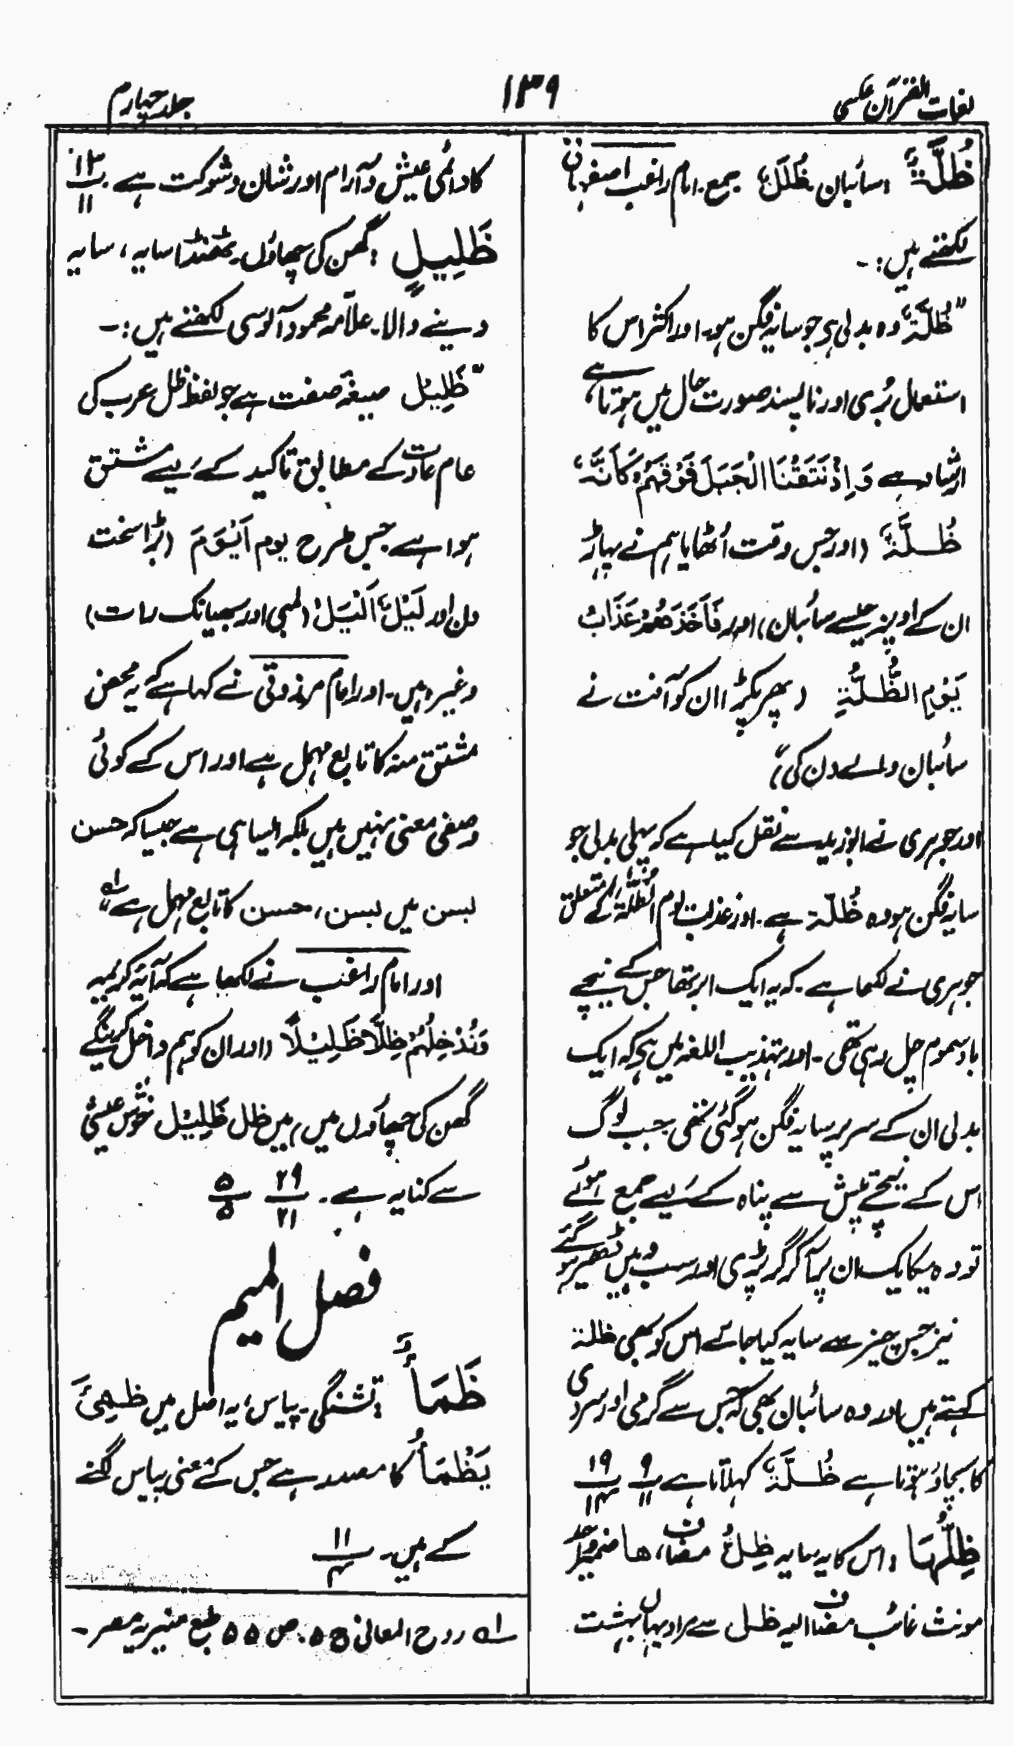 لغات القرآن عکسی
۱۳۹
جلد چہارم
ظُلَّةٌ : سائبان۔ ظُلَلٌ جمع۔ امام راغب اصفہانی
لکھتے ہیں:۔
"ظُلَّةٌ وہ بدلی ہی جو سایہ فگن ہو۔ اور اکثر اس کا
استعمال بُری اور ناپسند صورت حال میں ہوتا ہے،
ارشاد ہے وَاِذْ نَتَقْنَا الْجَبَلَ فَوْقَهُمْ كَاَنَّهٗ
ظُلَّةٌ (اور جس وقت اُٹھایا ہم نے پہاڑ
ان کے اوپر جیسے سائبان) اور فَاَخَذَهُمْ عَذَابُ
يَوْمِ الظُّلَّةِ (پھر پکڑا ان کو آفت نے
سائبان والے دن کی)"
اور جوہری نے ابوزید سے نقل کیا ہے کہ پہلی بدلی جو
سایہ فگن ہو وہ ظُلّۃ ہے۔ اور عذاب یوم الظُّلَّة کے متعلق
جوہری نے لکھا ہے۔ کہ یہ ایک ابر تھا جس کے نیچے
باد سموم چل رہی تھی۔ اور تہذیب اللغہ میں ہی کہ ایک
بدلی ان کے سر پر سایہ فگن ہو گئی تھی جب لوگ
اس کے نیچے تپش سے پناہ کے لیے جمع ہوئے
تو وہ یکایک ان پر آ کر گر پڑی اور سب وہیں ڈھیر ہو گئے
نیز جس چیز سے سایہ کیا جائے اس کو بھی ظلۃ
کہتے ہیں اور وہ سائبان بھی کہ جس سے گرمی اور سردی
کا بچاؤ ہوتا ہے ظُلَّةٌ کہلاتا ہے ۹/۱۱ ۱۹/۱۴
ظِلُّهَا : اس کا یہ سایہ ظِلُّ مضاف، ھا ضمیر واحد
مونث غائب مضاف الیہ ظل سے مراد یہاں بہشت
کا دائمی عیش و آرام اور شان و شوکت ہے ۱۳/۱۱
ظَلِيلٍ : گھن کی چھاؤں۔ ٹھنڈا سایہ، سایہ
دینے والا۔ علامہ محمود آلوسی لکھتے ہیں:۔
"ظَلِیل صیغۂ صفت ہے جو لفظ ظل عرب کی
عام عادت کے مطابق تاکید کے لیے مشتق
ہوا ہے جس طرح یوم اَیْوَمَ (بڑا سخت
دن اور لَيْلٌ اَلْيَلُ (لمبی اور بھیانک رات)
وغیرہ ہیں۔ اور امام مرزوقی نے کہا ہے کہ یہ محض
مشتق منہ کا تابع مہمل ہے اور اس کے کوئی
وصفی معنی نہیں ہیں بلکہ ایسا ہی ہے جیسا کہ حسن
بسن میں بسن، حسن کا تابع مہمل ہے"لہ
اور امام راغب نے لکھا ہے کہ آیۃ کریمہ
وَنُدْخِلُهُمْ ظِلًّا ظَلِيْلًا (اور ان کو ہم داخل کرینگے
گھن کی چھاؤں میں) میں ظل ظَلِیْل خوش عیشی
سے کنایہ ہے۔ ۲۹/۲۱ ۵/۵
فصل المیم
ظَمَأٌ : تشنگی۔ پیاس، یہ اصل میں ظَمِئَ
يَظْمَأُ کا مصدر ہے جس کے معنی پیاس لگنے
کے ہیں۔ ۱۱/۴
لہ روح المعانی ج ۵، ص ۵۵ طبع منیریہ مصر۔